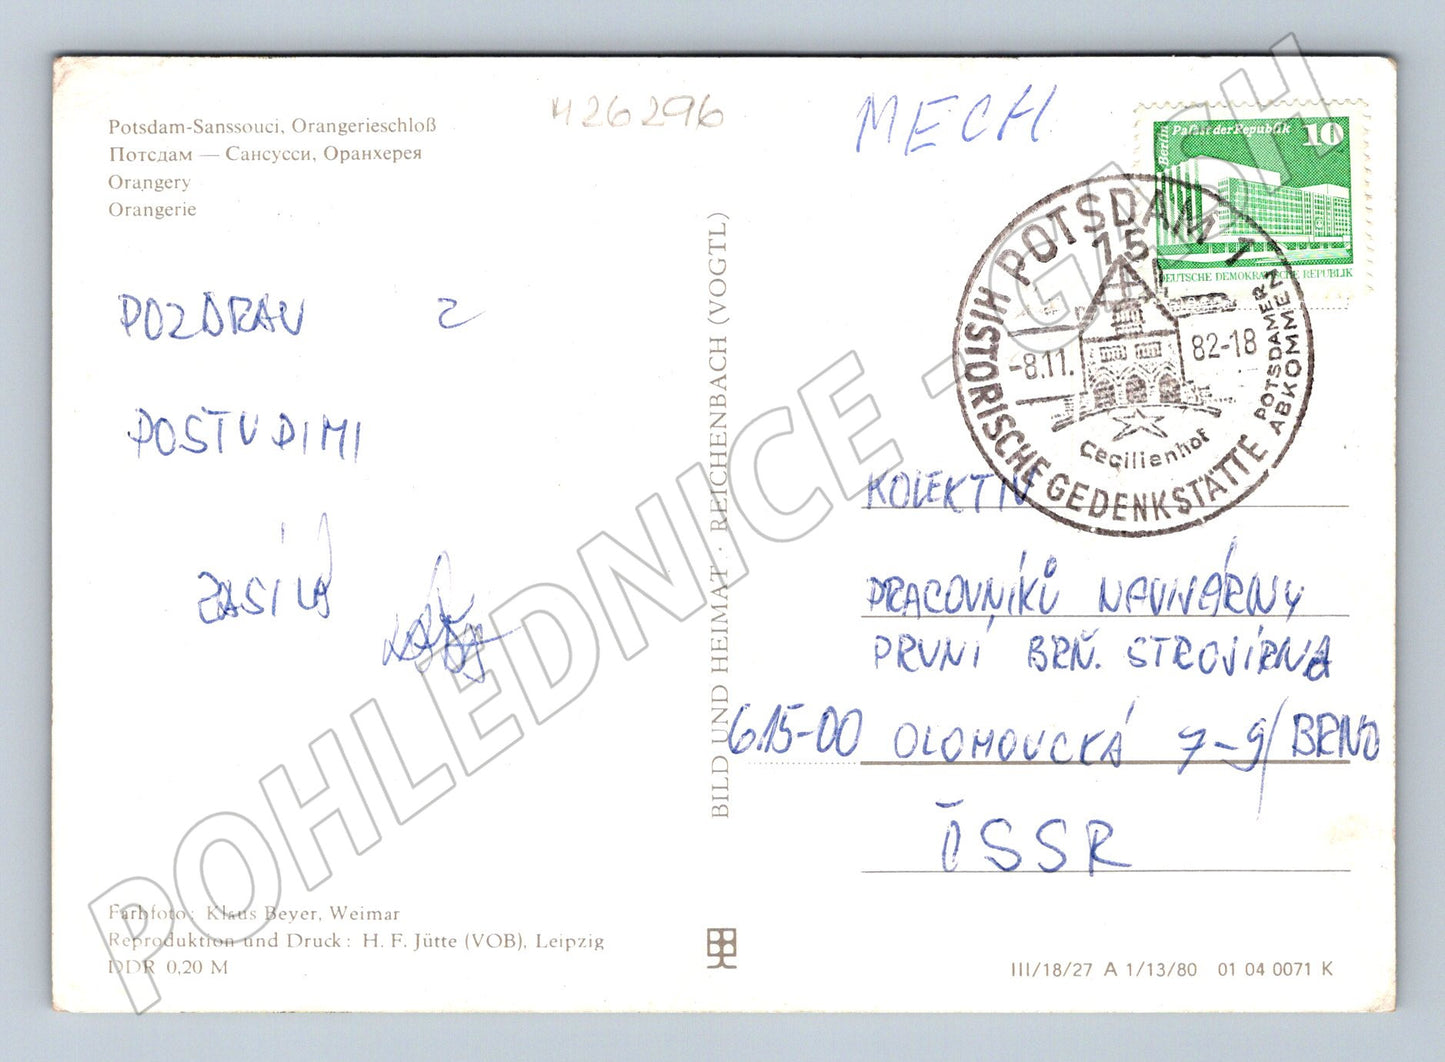 Potsdam-Sanssouci, Orangerieschloß
Потсдам — Сансусси, Оранжерея
Orangery
Orangerie
426296
MECH
Berlin Palast der Republik 10
DEUTSCHE DEMOKRATISCHE REPUBLIK
POTSDAM 1
15
HISTORISCHE GEDENKSTÄTTE
-8.11. 82-18
POTSDAMER
ABKOMMEN
Cecilienhof
POZDRAV Z
POSTUPIMI
ZASÍLÁ
BILD UND HEIMAT · REICHENBACH (VOGTL)
KOLEKTIV
PRACOVNÍKŮ NAVIJÁRNY
PRVNÍ BRŇ. STROJÍRNA
615-00 OLOMOUCKÁ 7-9/BRNO
ČSSR
Farbfoto: Klaus Beyer, Weimar
Reproduktion und Druck: H. F. Jütte (VOB), Leipzig
DDR 0,20 M
III/18/27 A 1/13/80 01 04 0071 K
POHLEDNICE - GASH